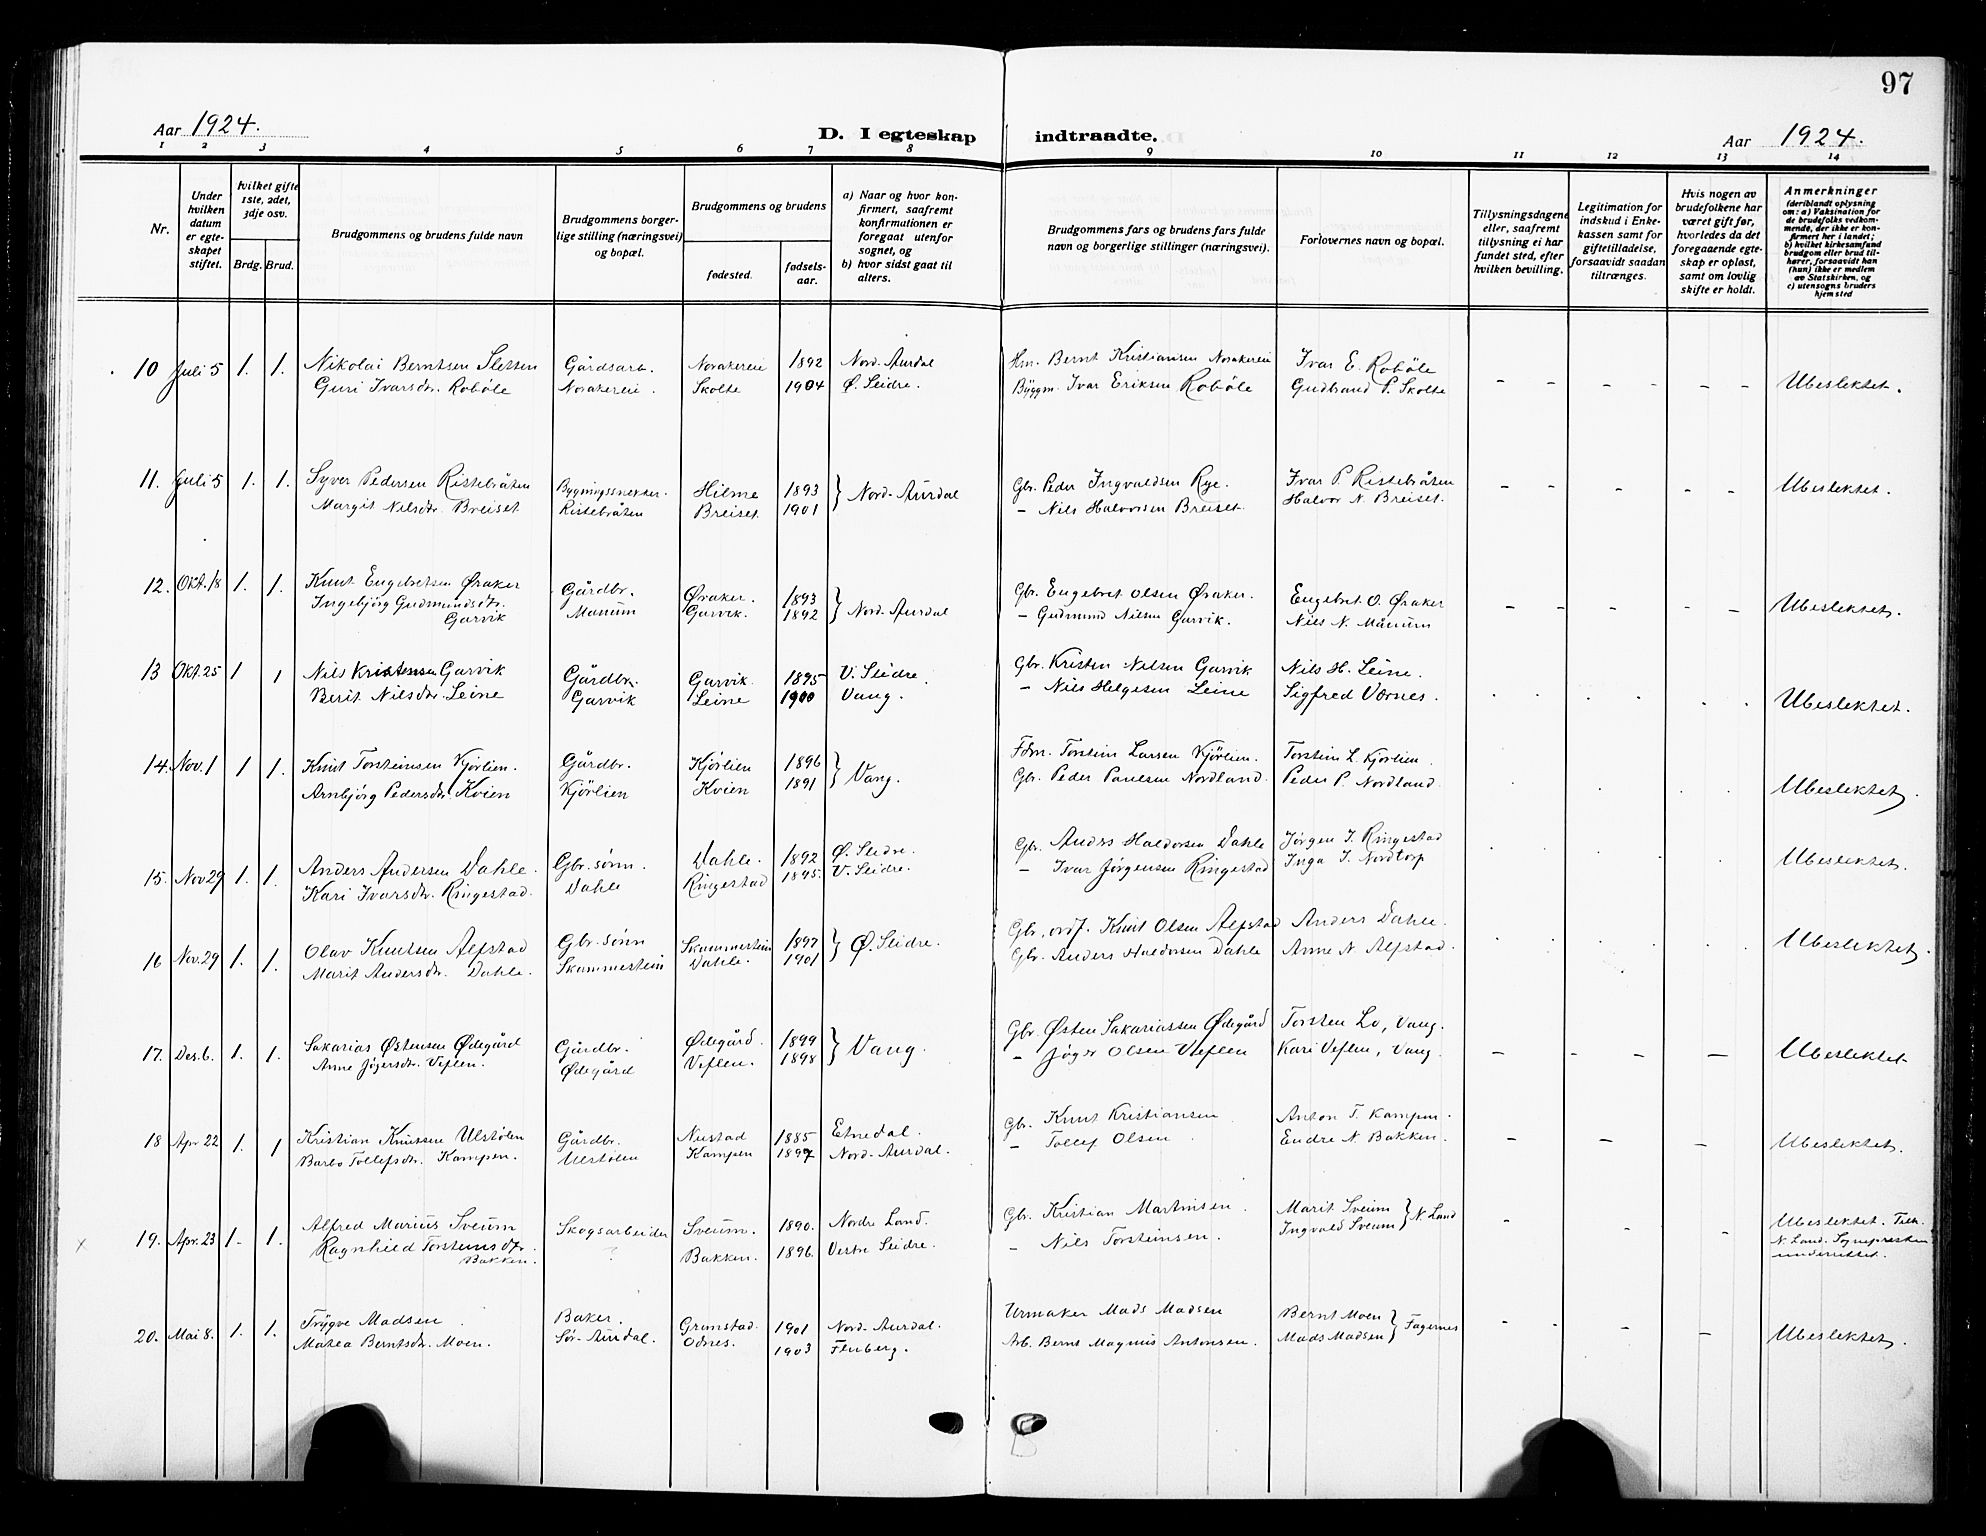 97
Aar 1924.
D. I egteskap indtraadte.
Aar 1924.
1 2 3 4 5 6 7 8 9 10 11 12 13 14
Nr.
Under hvilken datum er egteskapet stiftet.
hvilket gifte 1ste, 2det, 3dje osv.
Brdg. Brud.
Brudgommens og brudens fulde navn
Brudgommens borgerlige stilling (næringsvei) og bopæl.
Brudgommens og brudens
fødested. fødselsaar.
a) Naar og hvor konfirmert, saafremt konfirmationen er foregaat utenfor sognet, og
b) hvor sidst gaat til alters.
Brudgommens fars og brudens fars fulde navn og borgerlige stillinger (næringsvei).
Forlovernes navn og bopæl.
Tillysningsdagene eller, saafremt tillysning ei har fundet sted, efter hvilken bevilling.
Legitimation for indskud i Enkekassen samt for giftetilladelse, forsaavidt saadan tiltrænges.
Hvis nogen av brudefolkene har været gift før, hvorledes da det foregaaende egteskap er opløst, samt om lovlig skifte er holdt.
Anmerkninger (deriblandt oplysning om: a) Vaksination for de brudefolks vedkommende, der ikke er konfirmert her i landet; b) hvilket kirkesamfund brudgom eller brud tilhører, forsaavidt han (hun) ikke er medlem av Statskirken, og c) utensogns bruders hjemsted
10 Juli 5 1. 1. Nikolai Berntsen Sletten Gårdsarb. Norakereie 1892 Nord-Aurdal Hm. Bernt Kristiansen Norakereie Ivar E. Robøle
Guri Ivarsdtr. Robøle Norakereie. Skolte 1904 Ø. Slidre. Byggm. Ivar Eriksen Robøle Gudbrand P. Skolte - - - - - - Ubeslektet.
11. Juli 5 1. 1. Syver Pedersen Ristebråten Bygningssnekker. Hilme 1893 } Nord-Aurdal Gbr. Peder Ingvaldsen Rye. Ivar P. Ristebråten - - - - - Ubeslektet.
Margit Nilsdtr. Breiset Ristebråten Breiset. 1901 - Nils Halvorsen Breiset. Halvor N. Breiset.
12. Okt. 18 1. 1. Knut Engebretsen Øraker Gårdbr. Øraker. 1893 } Nord-Aurdal Gbr. Engebret Olsen Øraker. Engebret O. Øraker
Ingebjørg Gudmundsdtr. Garvik Månum Garvik. 1892 - Gudmund Nilsen Garvik. Nils N. Månum - - - - - Ubeslektet.
13 Okt. 25 1 1 Nils Kristensen Garvik Gårdbr. Garvik. 1895 V. Slidre. Gbr. Kristen Nilsen Garvik Nils H. Leine.
Berit Nilsdtr. Leine Garvik Leine 1900 Vang. - Nils Helgesen Leine Sigfred Værnes. Ubeslektet.
14. Nov. 1 1 1. Knut Torsteinsen Kjørlien. Gårdbr. Kjørlien 1896 } Vang. Fdrm. Torstein Larsen Kjørlien. Torstein L. Kjørlien.
Arnbjørg Pedersdtr. Kvien Kjørlien Kvien 1891 Gbr. Peder Paulsen Nordland. Peder P. Nordland. Ubeslektet.
15. Nov 29 1. 1. Anders Andersen Dahle. Gbr. sønn. Dahle. 1892 Ø. Slidre. Gbr. Anders Haldorsen Dahle Jørgen I. Ringestad
Kari Ivarsdtr. Ringestad. Dahle Ringestad 1895. V. Slidre. - Ivar Jørgensen Ringestad Inga I. Nordtorp Ubeslektet.
16 Nov. 29 1. 1. Olav Knutsen Alfstad Gbr. sønn Skammestein 1897 } Ø. Slidre. Gbr, ordf. Knut Olsen Alfstad Anders Dahle.
Marit Andersdtr. Dahle. Skammestein Dahle. 1901 Gbr. Anders Haldorsen Dahle Anne N. Alfstad. Ubeslektet.
17. Des. 6. 1. 1. Sakarias Østensen Ødegård Gårdbr. Ødegård. 1899 } Vang. Gbr. Østen Sakariassen Ødegård Torsten Lo, Vang.
Anne Jøgersdtr. Veflen. Ødegård Veflen. 1898 - Jøger Olsen Veflen Kari Veflen, Vang. - - - - Ubeslektet
18 Apr 22 1. 1 Kristian Knutsen Ulstølen Gårdbr. Nustad 1885 Etnedal. Gbr. Knut Kristiansen Anton T. Kampen.
Barbo Tollefsdtr. Kampen. Ulstølen Kampen 1897 Nord-Aurdal. - Tollef Olsen Endre N. Bakken. - - - Ubeslektet.
19. Apr. 23 1. 1. Alfred Marius Sveum Skogsarbeider Sveum. 1890. Nordre Land. Gbr. Kristian Martinsen. Marit Sveum } N. Land Ubeslektet.
Ragnhild Torsteinsdtr. Bakken. Bakken. 1896. Vestre Slidre. - Nils Torsteinsen. Ingvald Sveum - - - N. Land. Sognepresten underrettet.
20. Mai 8. 1. 1. Trygve Madsen Baker. Grimstad. 1901 Nord-Aurdal. Urmaker Mads Madsen Bernt Moen } Fagernes
Matea Berntsdtr. Moen. Sør-Aurdal. Odnes. 1903 Fluberg. Arb. Bernt Magnus Antonsen. Mads Madsen - - - Ubeslektet.